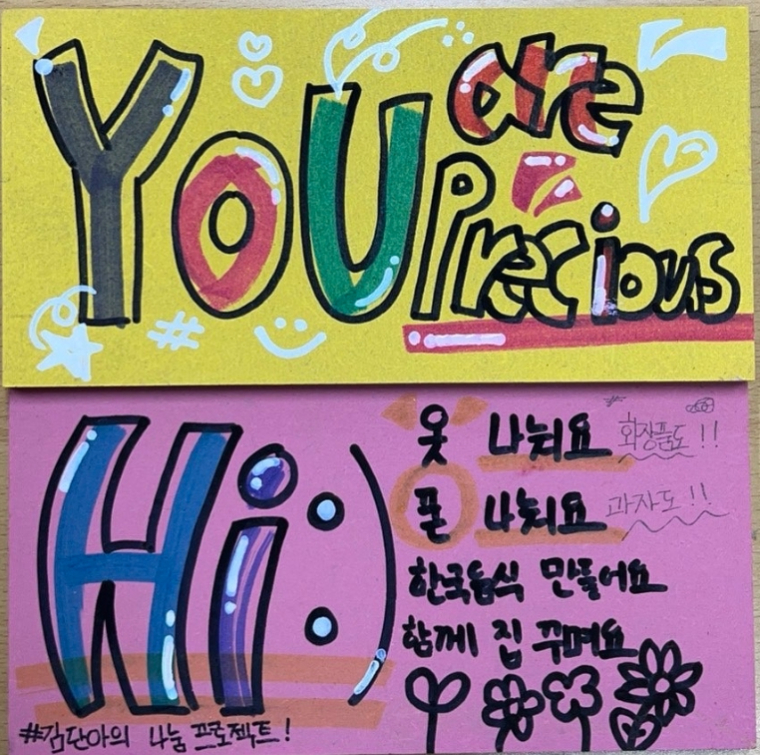 YOU are
Precious
#
Hi :)
옷 나눠요 화장품도!!
폰 나눠요 과자도!!
한국음식 만들어요
함께 집 꾸며요
#김단아의 나눔 프로젝트!